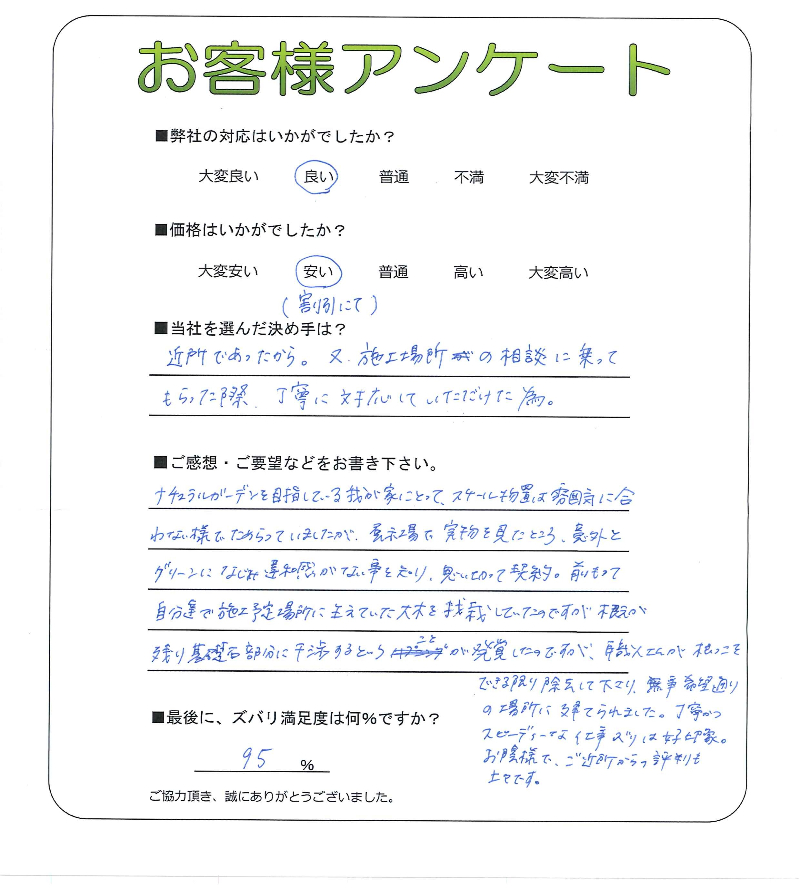 お客様アンケート
■弊社の対応はいかがでしたか？
大変良い 良い 普通 不満 大変不満
■価格はいかがでしたか？
大変安い 安い 普通 高い 大変高い
(割引にて)
■当社を選んだ決め手は？
近所であったから。又、施工場所の相談に乗って
もらった際、丁寧に対応していただけた為。
■ご感想・ご要望などをお書き下さい。
ナチュラルガーデンを目指している我が家にとって、スチール物置は雰囲気に合
わない様でためらっていましたが、展示場で実物を見たところ、意外と
グリーンになじみ違和感がない事を知り、思い切って契約。前もって
自分達で施工予定場所に生えていた大木を伐栽していたのですが根っこが
残り基礎石部分に干渉するということが発覚したのですが、職人さんが根っこを
できる限り除去して下さり、無事希望通り
の場所に建てられました。丁寧かつ
スピーディーな仕事ぶりは好印象。
お陰様で、ご近所からの評判も
上々です。
■最後に、ズバリ満足度は何％ですか？
95 %
ご協力頂き、誠にありがとうございました。